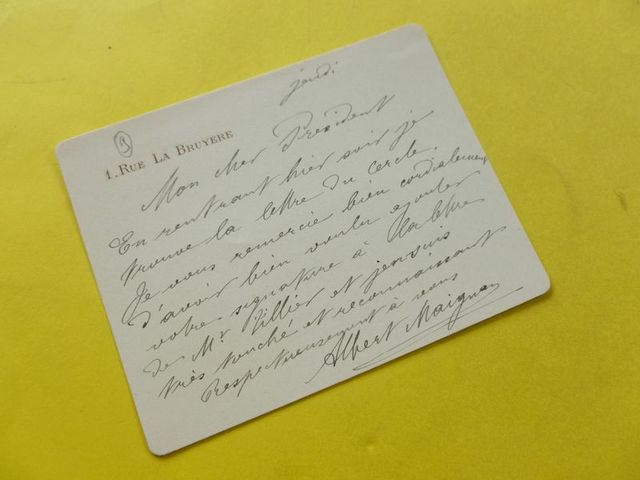 jeudi
9
1. RUE LA BRUYERE
Mon cher Président
En rentrant hier soir je
trouve la lettre du Cercle.
Je vous remercie bien cordialement
d'avoir bien voulu ajouter
votre signature à la lettre
de Mr. Tillier et j'en suis
très touché et reconnaissant
Respectueusement à vous
Albert Maignan